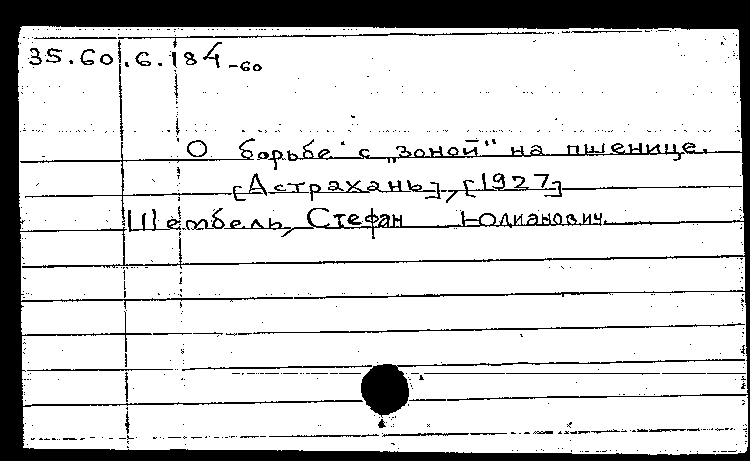 35.60.6.184-60
О борьбе с „зоной" на пшенице.
[Астрахань], [1927]
Штембель, Стефан Юлианович.